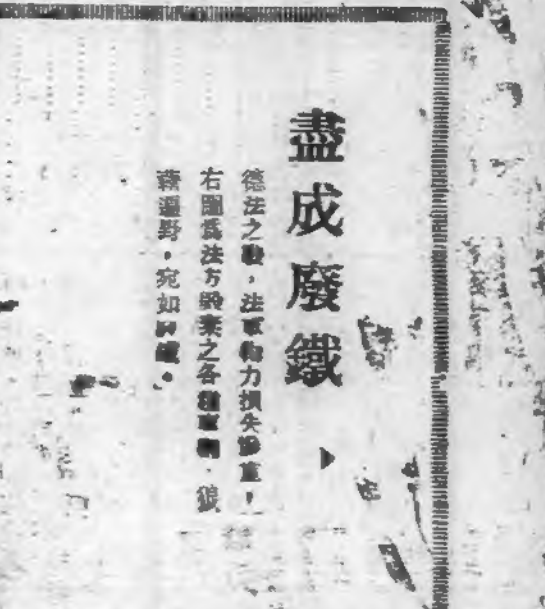 盡成廢鐵
德法之戰,法軍物力損失慘重,
右圖爲法方毀棄之各種車輛,狼
藉遍野,宛如